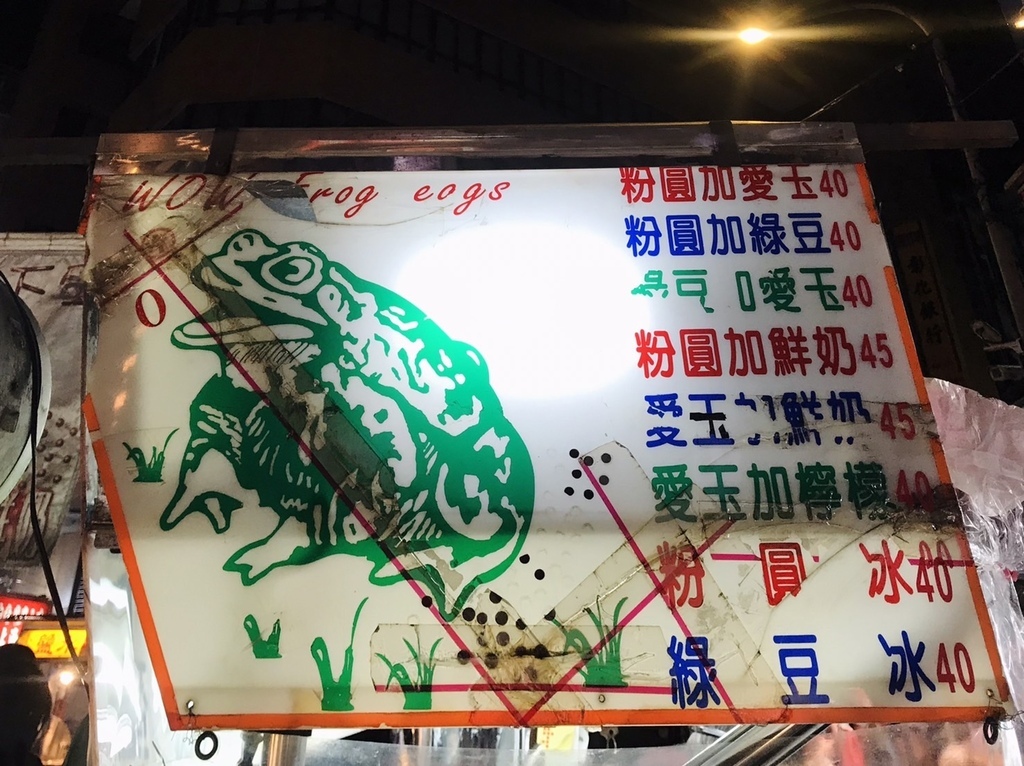 WOW, Frog eggs
O
粉圓加愛玉40
粉圓加綠豆40
綠豆加愛玉40
粉圓加鮮奶45
愛玉加鮮奶45
愛玉加檸檬40
粉圓冰40
綠豆冰40